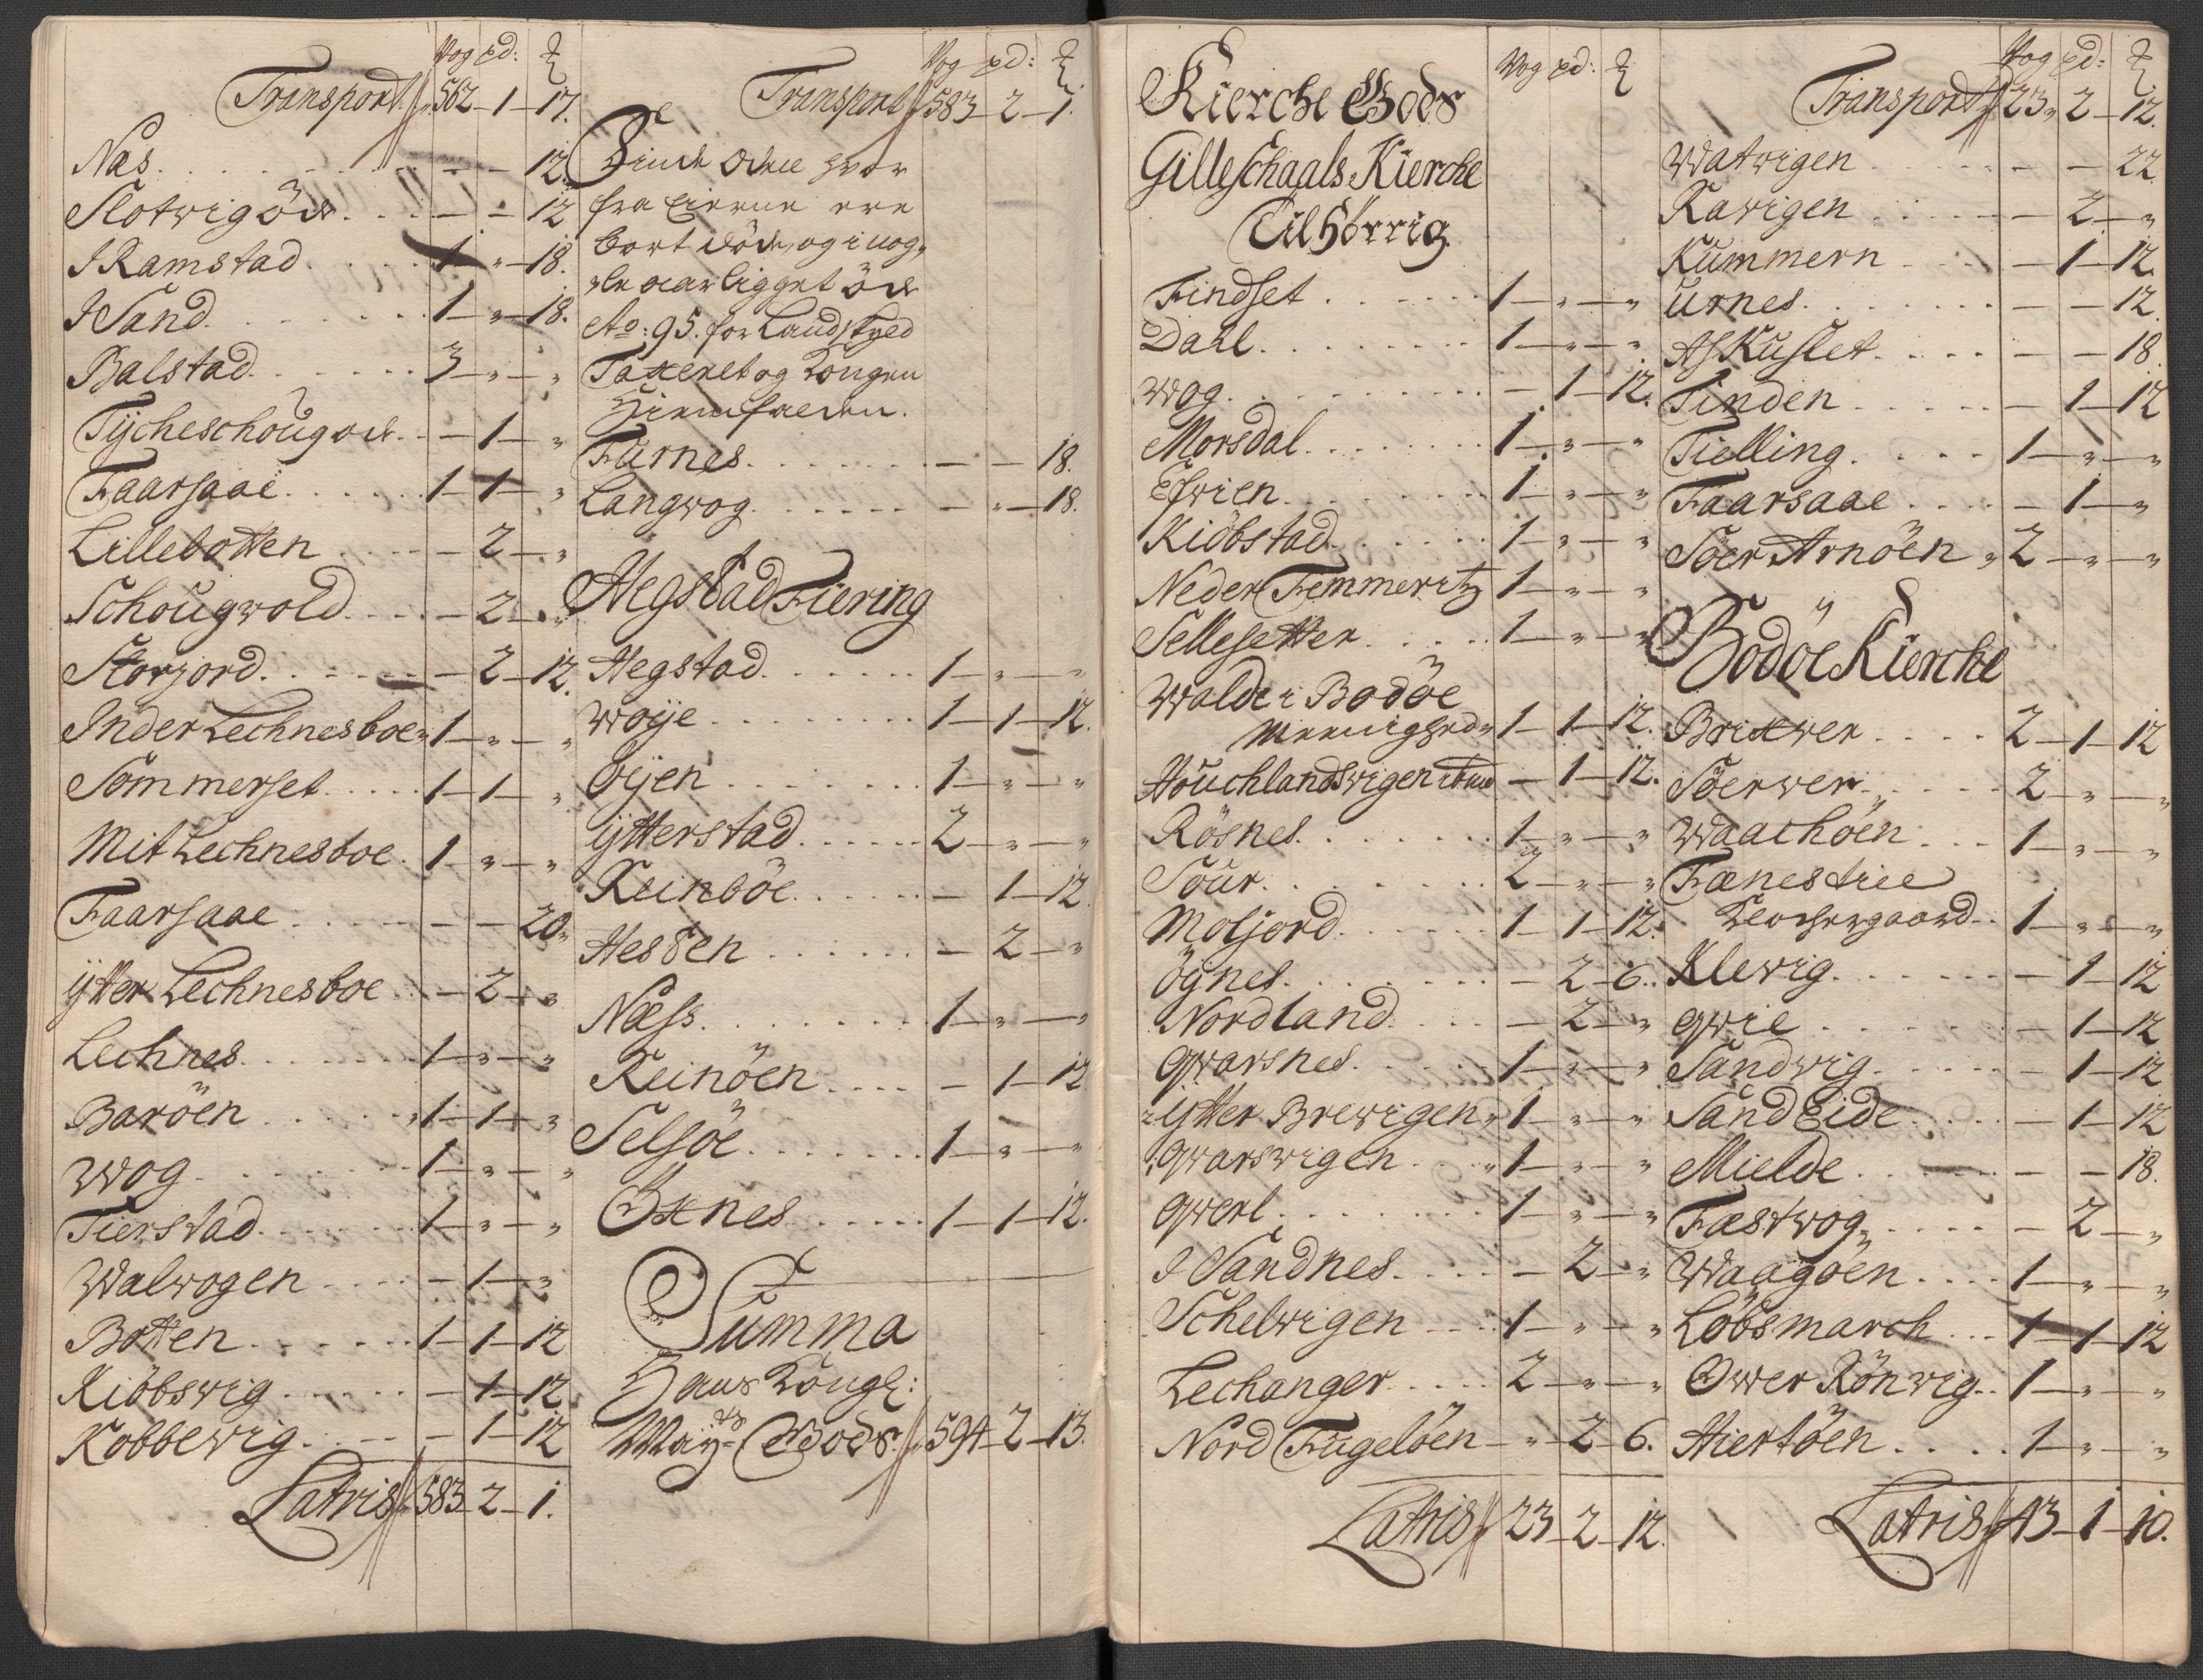 Vog pd: ℔
Transport 562 – 1 – 17.
Næs . . . – – 12.
Slotvigöde . . . – – 12
J Ramstad . . . 1 – „ – 18.
J Sand . . . 1 – „ – 18.
Balstad . . . 3 – „ – „
Tÿcheschougode . . – 1 – „
Faarsaae . . . 1 – 1 – „
Lillebotten . . . – 2 – „
Schougwold . . . – 2 – „
Storjord . . . – 2 – 12.
Inder Lechnesboe „ 1 – „ – „
Sommerset . . . 1 – 1 – „
Mit Lechnesboe . 1 – „ – „
Faarsaae . . . – – 20.
ÿtter Lechnesboe . . – 2 – „
Lechnes . . . 1 – „ – „
Baröen . . . 1 – 1 – „
Wog . . . 1 – „ – „
Tierstad . . . 1 – „ – „
Walwogen . . . – 1 – „
Botten . . . 1 – 1 – 12
Kiöbswig . . . – 1 – 12
Kobbewig . . . – 1 – 12
Latris 583 – 2 – 1.
Vog pd: ℔
Transport 583 – 2 – 1.
Finde Odne hvor
fra Eierne ere
bort döde, og i nog-
le aar ligget öde
Ao: 95. for Landskyld
Taxeret og Kongen
Hiemfalden.
Furnes . . . – – 18.
Langwog . . . – „ – 18.
Hegstad Fiering
Hegstad . . . 1 – „ – „
Woÿe . . . 1 – 1 – 12.
Öÿen . . . 1 – „ – „
ÿtterstad . . . 2 – „ – „
Reinböe . . . – 1 – 12.
Hessen . . . – 2 – „
Næss . . . 1 – „ – „
Reinöen . . . – 1 – 12
Selsöe . . . 1 – „ – „
Öxnes . . . 1 – 1 – 12.
Summa
Hans Kongl:
Maÿts Godds. 594 – 2 – 13.
Vog pd: ℔
Kierche Gods
Gilleschaals Kierche
Tilhörrig
Findset . . . 1 – „ – „
Dahl . . . 1 – „ – „
Wog . . . – 1 – 12.
Morsdal . . . 1 – „ – „
Eswien . . . 1 – „ – „
Kiöbstad . . . 1 – „ – „
Neder Femmeritz 1 – „ – „
Sellesetter . . . 1 – „ – „
Walde i Bodöe
Mennighed „ 1 – 1 – 12.
Houchlandswigen ibm – 1 – 12.
Rösnes . . . 1 – „ – „
Sour . . . 2 – „ – „
Moljord . . . 1 – 1 – 12.
Ögnes . . . – 2 – 6.
Nordland . . . – 2 – „
Qwarsnes . . . 1 – „ – „
ÿtter Brewigen „ 1 – „ – „
Qwarswigen . . . 1 – „ – „
Qwerl . . . 1 – „ – „
J Sandnes . . . – 2 – „
Schelwigen . . . 1 – „ – „
Lechanger . . . 2 – „ – „
Nord Fugelöen – „ 2 – 6.
Latris 23 – 2 – 12.
Vog pd: ℔
Transport 23 „ 2 – 12.
Watwigen . . . – – 22.
Rawigen . . . – 2 – „
Kummern . . . – 1 – 12.
Urnes . . . – – 12.
AsKuslet . . . – – 18.
Tinden . . . – 1 – 12
Tielling . . . 1 – „ – „
Faarsaae . . . – 1 – „
Söer Arnöen „ 2 – „ – „
Bodöe Kierche
Brixwer . . . 2 – 1 – 12
Söerwer . . . 2 – „ – „
Waachöen . . . 1 – „ – „
Fænes tiee
Klochergaard . . 1 – „ – „
Klewig . . . – 1 – 12
Qwie . . . – 1 – 12
Sandwig . . . – 1 – 12
Sand Eide . . . – 1 – 12
Mielde . . . – – 18.
Fæstwog . . . – 2 – „
Waagöen . . . 1 – „ – „
Löbsmarch . . . 1 – 1 – 12
Ower Rönwig . . 1 – „ – „
Hiertöen . . . 1 – „ – „
Latris 43 – 1 – 10.